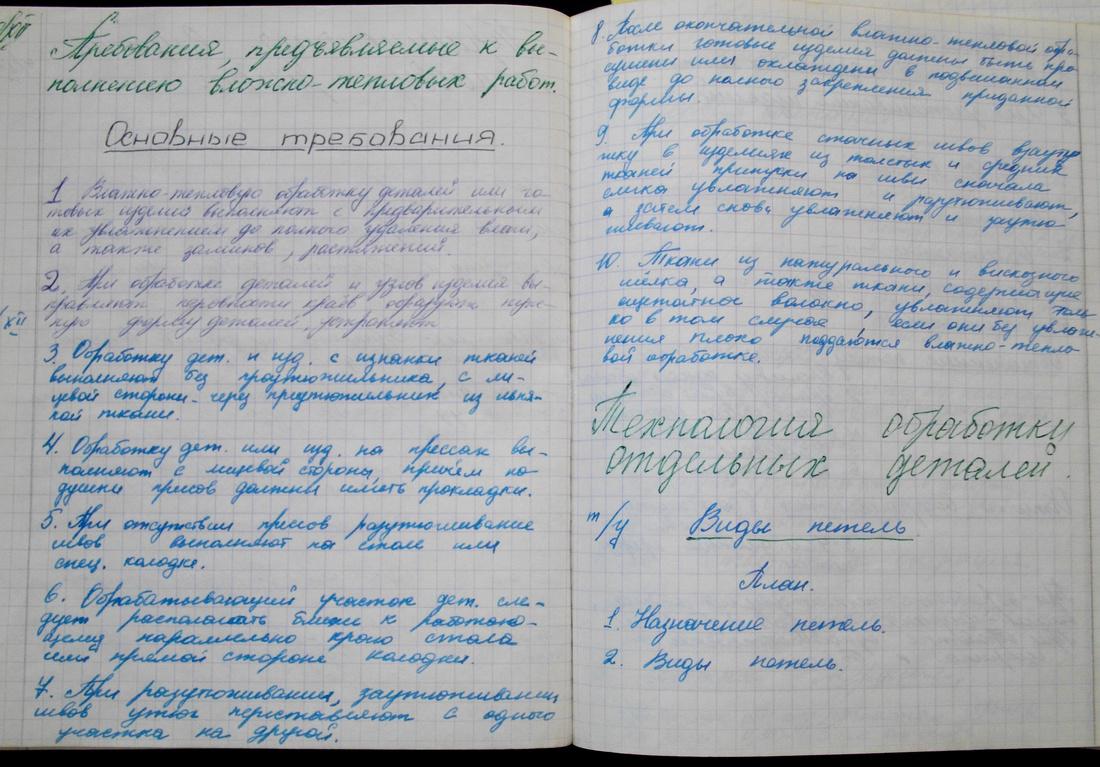 Требования, предъявляемые к вы-
полнению влажно-тепловых работ.
Основные требования.
1 Влажно-тепловую обработку деталей или го-
товых изделий выполняют с предварительным
их увлажнением до полного удаления влаги,
а также заминов, растяжений.
2. При обработке деталей и узлов изделий вы-
правляют неровности краёв
форму деталей, устраняют
XII
3. Обработку дет. и изд. с изнанки тканей
выполняют без проутюжильника, с ли-
цевой стороны - через проутюжильник из льня-
ной ткани.
4. Обработку дет. или изд. на прессах вы-
полняют с лицевой стороны, причём по-
душки прессов должны иметь прокладки.
5. При отсутствии прессов разутюживание
швов выполняют на столе или
спец. колодке.
6. Обрабатывающий участок дет. сле-
дует располагать ближе к работаю-
щему параллельно краю стола
или прямой стороне колодки.
7. При разутюживании, заутюживании
швов утюг переставляют с одного
участка на другой.
8. После окончательной влажно-тепловой обра-
ботки готовые изделия должны быть про-
сушены или охлаждены в подвешенном
виде до полного закрепления приданной
формы.
9. При обработке стачных швов взаутю
жку в изделиях из толстых и средних
тканей припуски на швы сначала
слегка увлажняют и разутюживают,
а затем снова увлажняют и заутю-
живают.
10. Ткани из натурального и вискозного
шёлка, а также ткани, содержащие
ацетатное волокно, увлажняют толь
ко в том случае, если они без увлаж-
нения плохо поддаются влажно-тепло-
вой обработке.
Технология обработки
отдельных деталей.
т/у Виды петель
План.
1. Назначение петель.
2. Виды петель.